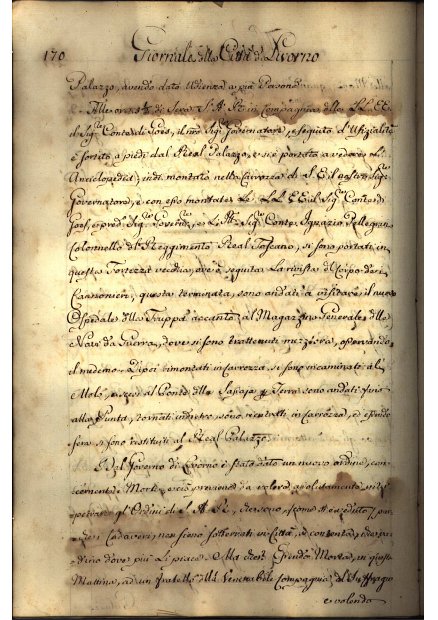 170 Giornale della Città di Livorno
Palazzo, avendo dato Udienza a più Persone
Alle ore 5½ di Sera S. A. R. in Compagnia delle LL. EE.
il Sig.re Conte di Goes, il Sig.r Governatore, e seguito d'Ufizialità
è sortito a piedi dal Real Palazzo, e si è portato a vedere
Anciclopedia; indi montato nella Carrozza di S. E. il Sig.r
Governatore, e con esso montate le LL. EE. il Sig.r Conte di
Goes, e pred.o Sig.r Govern.re, e Sig.r Conte Ignazio Pellegrini
Colonnello del Reggimento Real Toscano, si sono portati in
questa Fortezza vecchia, ove è seguita La rivista del Corpo dei
Cannonieri, questa terminata, sono andati a visitare il nuovo
Ospedale della Truppa accanto al Magazzino Generale delle
Navi da Guerra, dove si sono trattenuti mezz'ora, osservando
il medemo. Di poi rimontati in Carrozza si sono incaminati al
Molo, e scesi al Ponte della Sassaja per Terra sono andati fino
alla Punta, tornati indietro, sono rientrati in Carrozza, ed essendo
sera si sono restituiti al Real Palazzo.
Dal Governo di Livorno è stato dato un nuovo ordine, con-
cernente i Morti, e ciò previene da valere assolutamente
gli Ordini di S. A. R.,
dei Cadaveri, non siano sotterrati in Città,
dove più Li piace. Alla
Mattina, ad un fratello della Venerabile Compagnia del Suffragio
e volendo